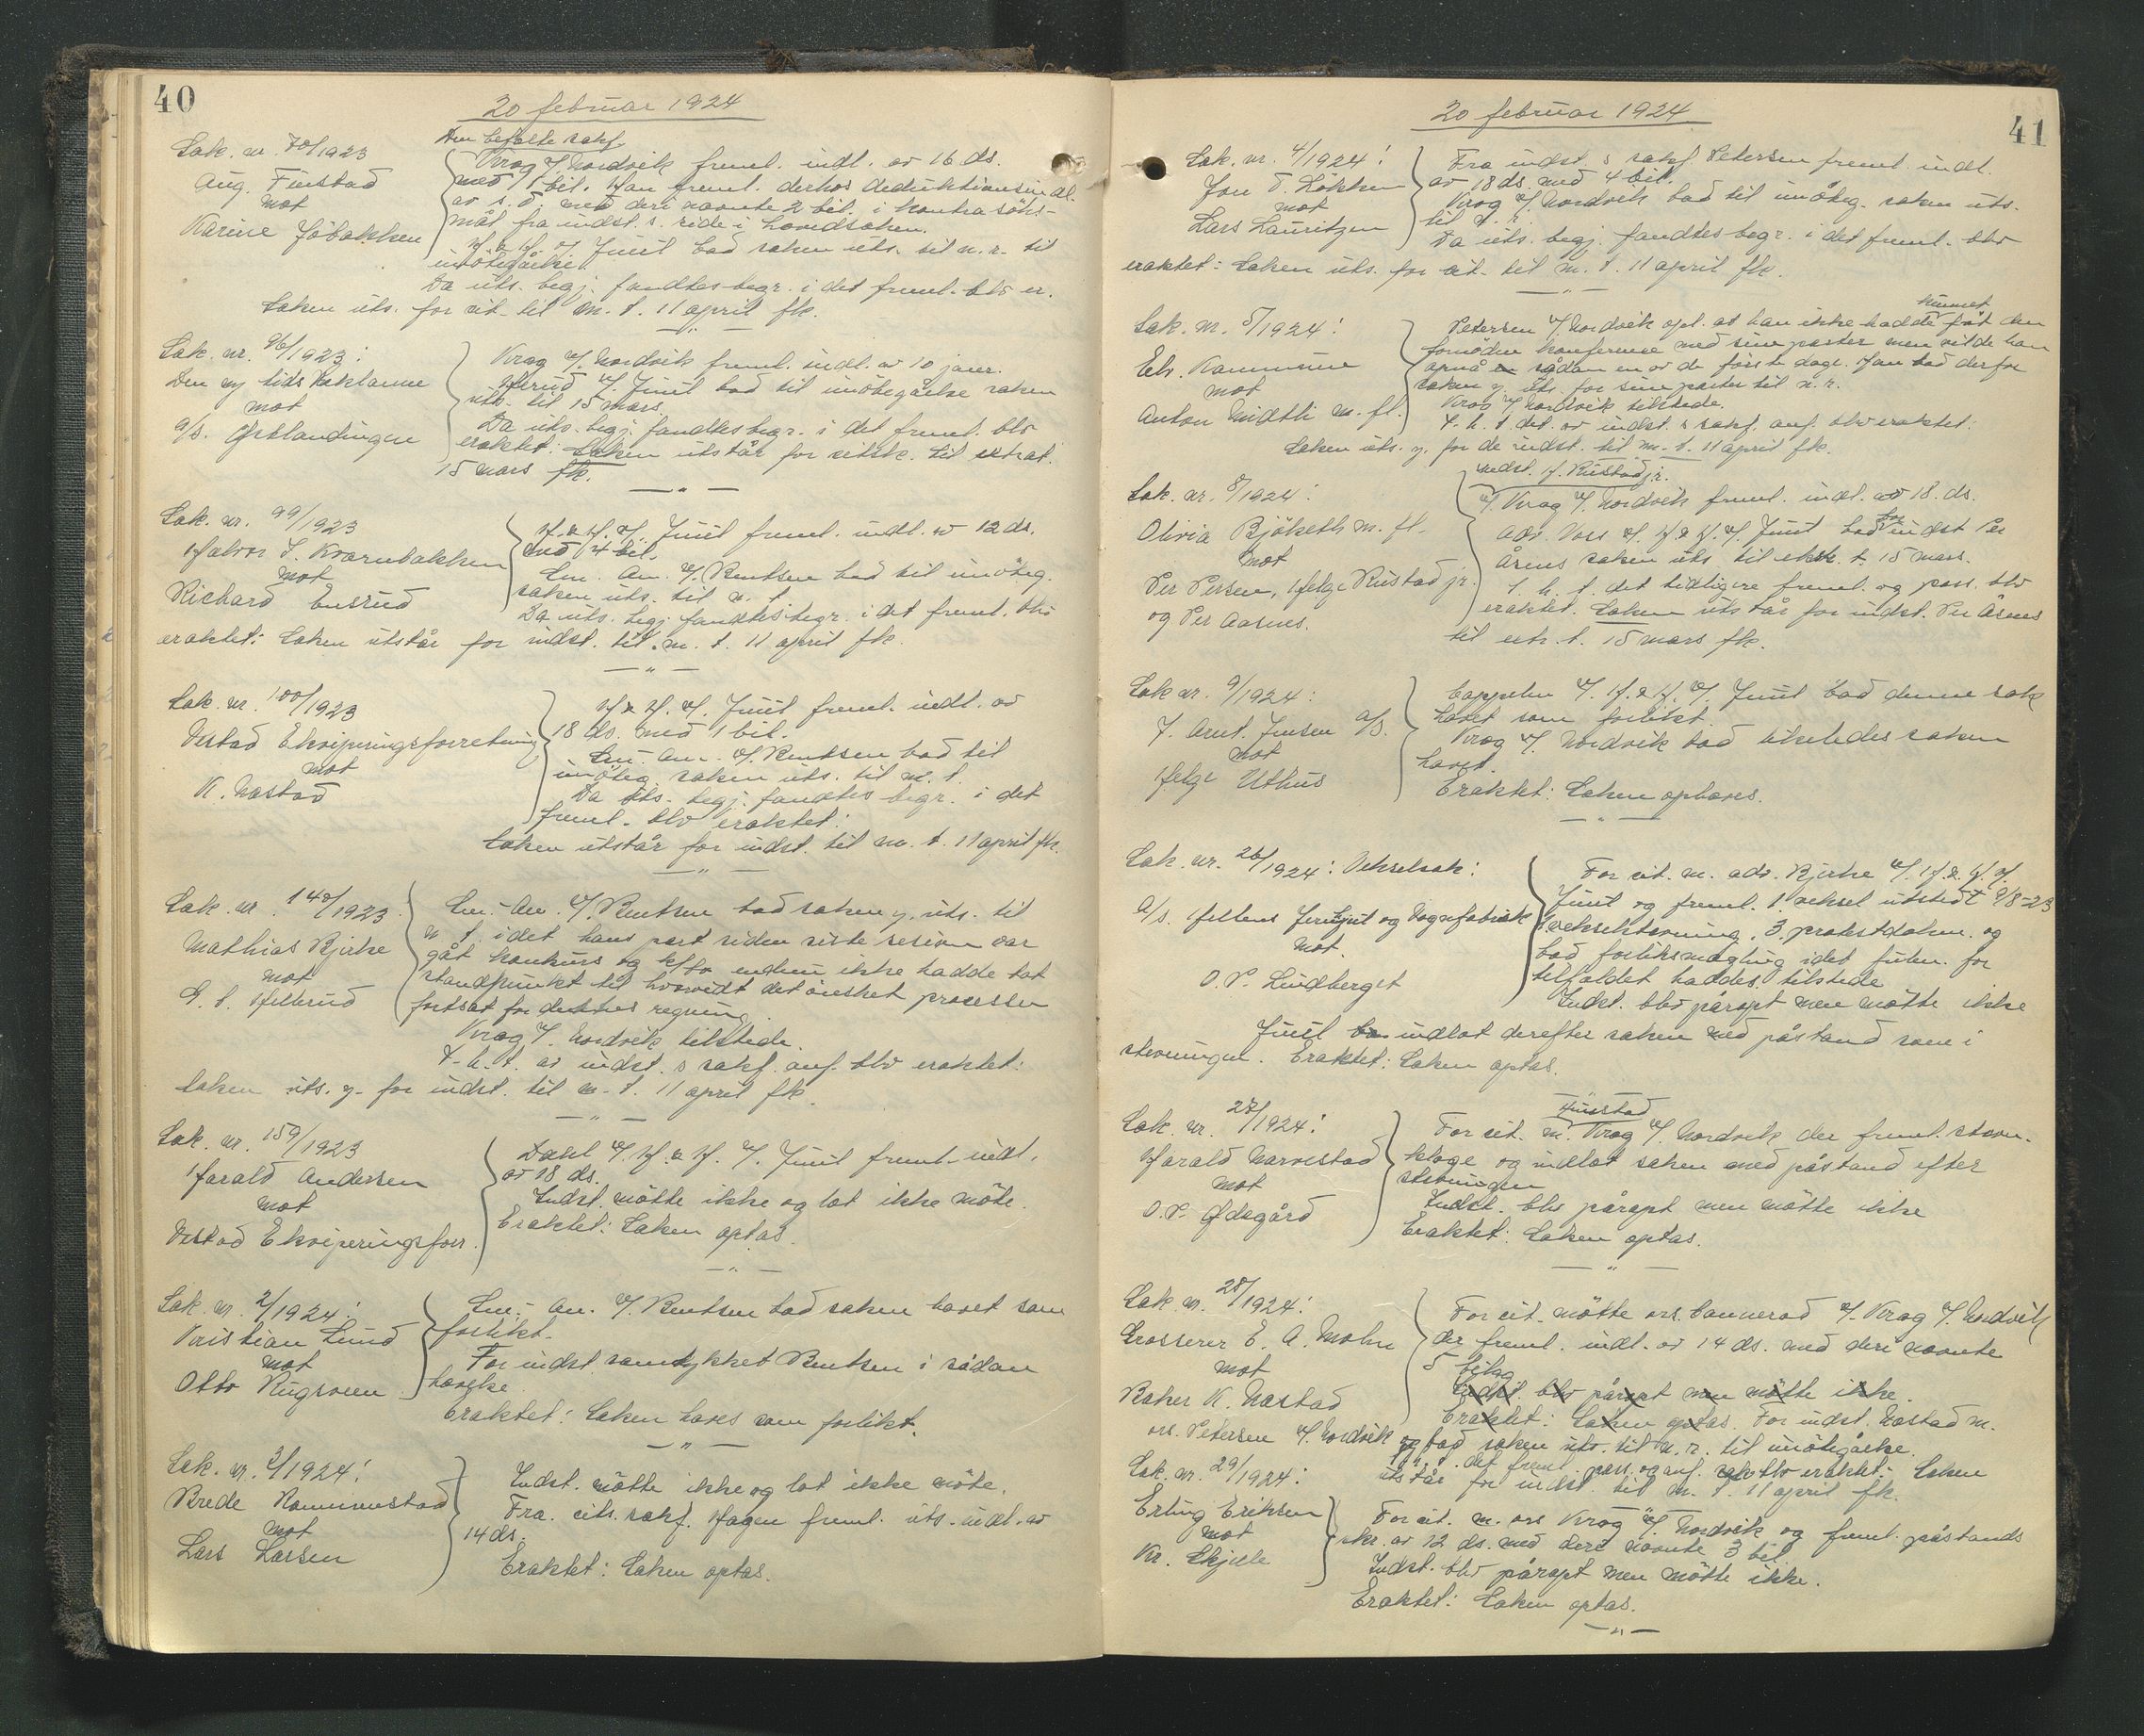 40
20 februar 1924
Sak. nr. 70/1923
Aug. Finstad
mot
Karine Jöbakken
Den befalte sakf.
Krag v/ Nordvik freml. indl. av 16 ds.
med 1 bil. Han freml. derhos deduktionsindl.
av s. d. med deri nævnte 2 bil. i kontrasöks-
mål fra indst. s. side i hovedsaken.
H. & H. v/ Juul bad saken uts. til n. r. til
imötegåelse.
Da uts. begj. fandtes begr. i det freml. blv er.
Saken uts. for cit. til m. t. 11 april fk.
Sak. nr. 96/1923:
Den ny tids
mot
a/s. Østlandingen
Krag v/ Nordvik freml. indl. av 10 januar.
v/ Juul bad til imötegåelse saken
uts. til 15 mars.
Da uts. begj. fandtes begr. i det freml. blv
eraktet: Saken utstår for citste. til extrat.
15 mars fk.
Sak. nr. 99/1923
Halvor T. Kvarnbakken
mot
Richard Engrud
H. & H. v/ Juul freml. indl. av 12 ds.
med 4 bil.
Em. An. v/ Bentsen bad til imöteg.
saken uts. til n. t.
Da uts. begj. fandtes begr. i det freml. blv
eraktet: Saken utstår for indst. til m. t. 11 april fk.
Sak. nr. 100/1923
Vestad Ekviperingsforretning
mot
K. Nastad
H & H. v/. Juul freml. indl. av
18 ds. med 1 bil.
Em. An. v/ Bentsen bad til
imöteg. saken uts. til m. t.
Da uts. begj. fandtes begr. i det
freml. blv eraktet:
Saken utstår for indst. til m. t. 11 april fk.
Sak. nr. 148/1923
Mathias Bjirke
mot
G. T. Hellerud
Em. An. v/. Bentsen bad saken y. uts. til
n. t. idet hans part siden siste sesion var
gåt konkurs og k/bo endnu ikke hadde tat
standpunkt til hvorvidt det önsket processen
fortsat for dettes regning.
Krag v/. Nordvik tilstede.
T. h. t. av indst. s sakf. anf. blv eraktet:
Saken uts. y. for indst. til m. t. 11 april fk.
Sak. nr. 159/1923
Harald Andersen
mot
Vestad Ekviperingsforr.
Dahl v/. H & H. v/. Juul freml. indl.
av 18 ds.
Indst. mötte ikke og lot ikke möte.
Eraktet: Saken optas.
Sak. nr. 2/1924:
Kristian Lund
mot
Otto Rugsveen
Em. An. v/. Bentsen bad saken hævet som
forlikt.
For indst. samtykket Bentsen i sådan
hævelse.
Eraktet: Saken hæves som forlikt.
Sak. nr. 3/1924:
Brede Rommenstad
mot
Lars Larsen
Indst. mötte ikke og lot ikke möte.
Fra. cits. sakf. Hagen freml. uts. indl. av
14 ds.
Eraktet: Saken optas.
41
20 februar 1924
Sak. nr. 4/1924:
Jon O. Lökken
mot
Lars Lauritzen
Fra indst. s sakf. Petersen freml. indl.
av 18 ds. med 4 bil.
Krag v/ Nordvik bad til imöteg. saken uts.
til n. r.
Da uts. begj. fandtes begr. i det freml. blv
eraktet: Saken uts. for cit. til m. t. 11 april fk.
Sak. nr. 5/1924:
Elv. Kommune
mot
Anton Midtli m. fl.
Petersen v/ Nordvik opl. at han ikke hadde kunnet fåt den
fornödne konferense med sine parter men vilde han
opnå sådan en av de förste dage. Han bad derfor
saken y. uts. for sine parter til n. r.
Krag v/ Nordvik tilstede.
T. h. t det av indst. s sakf. anf. blv eraktet:
Saken uts. y. for de indst. til m. t. 11 april fk.
Sak. nr. 8/1924:
Olivia Björketh m. fl.
mot
Per Persen, Helge Rustad jr.
og Per Aasnes.
indst. H. Rustad jr.
v/ Krag v/ Nordvik freml. indl. av 18. ds.
Adv. Voss v/. H & H. v/ Juul bad for indst Per
Åsnes saken uts til ekstr. t. 15 mars.
T. h. t. det tidligere freml. og pass. blv
eraktet. Saken utstår for indst. Per Åsnes
til extr. t. 15 mars fk.
Sak nr. 9/1924:
J. Arnt. Jensen a/s.
mot
Helge Uthus
Cappelen v/. H. & H. v/. Juul bad denne sak
hævet som forlikt.
Krag v/ Nordvik bad likeledes saken
hævet.
Eraktet: Saken ophæves.
Sak. nr. 26/1924: Vekselsak:
A/s. Hellens og Vognfabrik
mot.
O. P. Lindberget
For cit. m. adv. Bjirke v/. H. & H. v/
Juul og freml. 1 veksel utstedt 9/8-23
1 vekselstevning, 3 protestdokm. og
bad forliksmægling idet fuldm. for
tilfældet haddes tilstede
Indst. blv påropt men mötte ikke
Juul indlot derefter saken med påstand som i
stevningen. Eraktet: Saken optas.
Sak. nr. 27/1924:
Harald Narvestad
mot
O. P. Ødegård
Huustad
For cit. m. Krag v/. Nordvik der freml. stevn.
klage og indlot saken med påstand efter
stevningen
Indst. blv påropt men mötte ikke
Eraktet: Saken optas.
Sak. nr. 28/1924:
Grosserer E. A. Mohn
mot
Baker K. Nastad
For cit. mötte ors. Bannerad v/. Krag v/. Nordvik
der freml. indl. av 14 ds. med deri nævnte
5 bilag
Indst. blv påropt men mötte ikke.
Eraktet: Saken optas. For indst. Nastad m.
ors. Petersen v/. Nordvik og bad saken uts. til n. r. til imötegåelse.
T. h. t. det freml. pass. og anf. blv eraktet: Saken
utstår for indst. til m. t. 11 april fk.
Sak. nr. 29/1924:
Erling Eriksen
mot
Kr. Skjelle
For cit. m. ors Krag v/. Nordvik og freml. påstands
skr. av 12 ds. med deri nævnte 3 bil.
Indst. blv påropt men mötte ikke.
Eraktet: Saken optas.